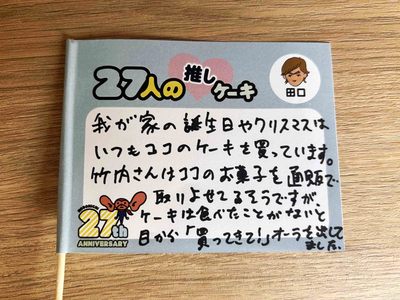 27人の推しケーキ
田口
我が家の誕生日やクリスマスは
いつもココのケーキを買っています。
竹内さんはココのお菓子を通販で
取りよせてるそうですが、
ケーキは食べたことがないと
目から「買ってきて！」オーラを出して
ました。
27th
ANNIVERSARY